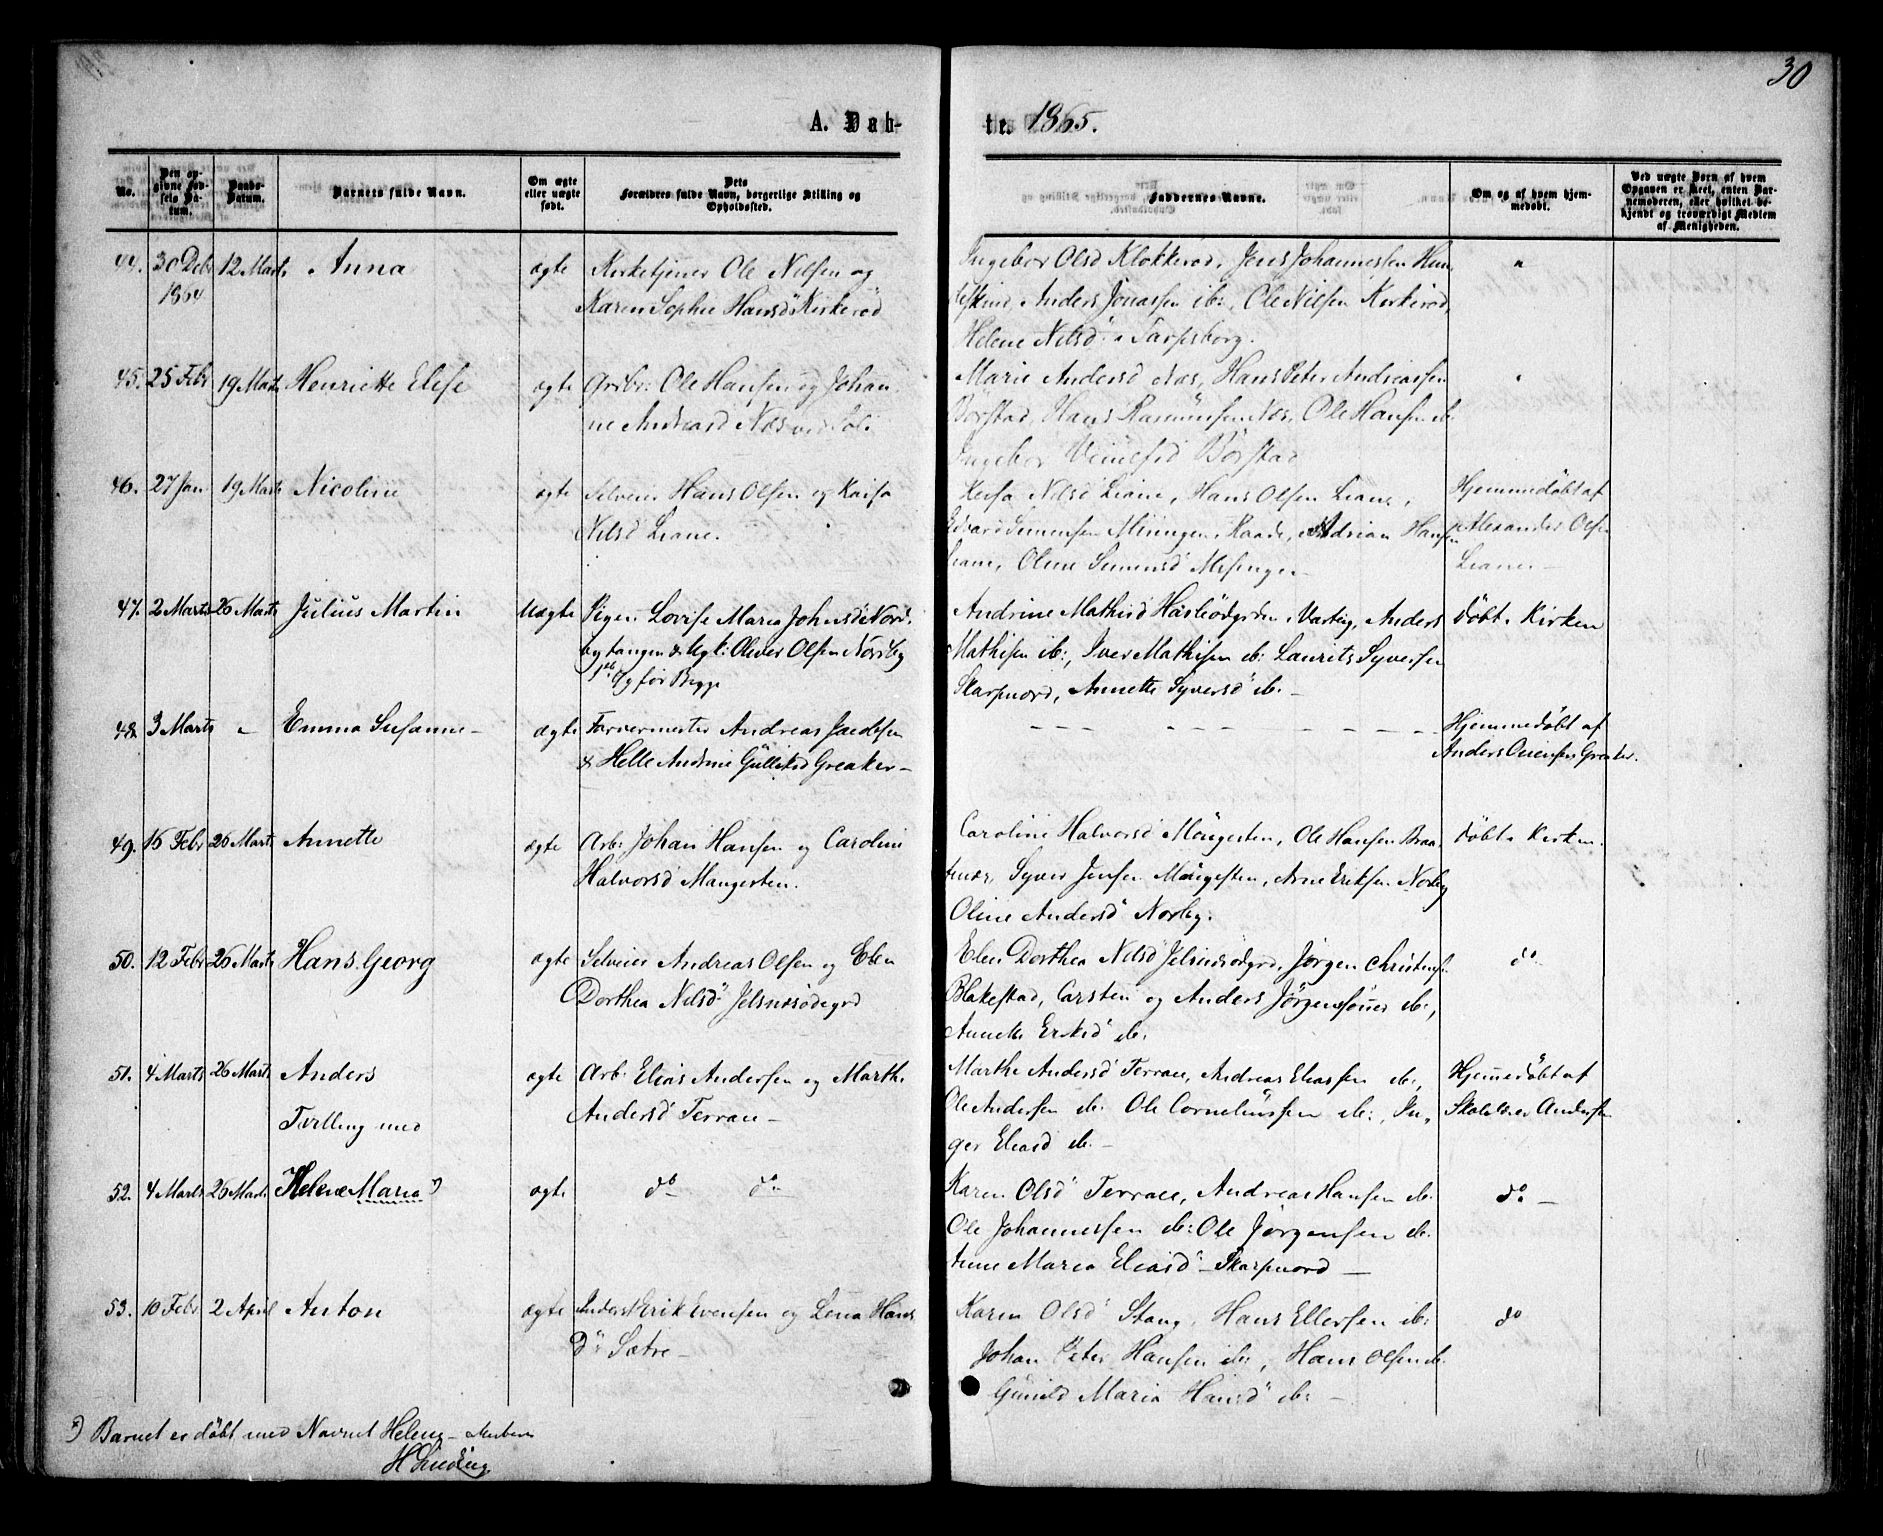 30
A. Dåb-
te. 1865.
No.
Den opgivne Fødsels Datum.
Daabs-Datum.
Barnets fulde Navn.
Om ægte eller uægte født.
Dets Forældres fulde Navn, borgerlige Stilling og Opholdssted.
Faddernes Navne.
Om og af hvem hjemmedøbt.
Ved uægte Børn af hvem Opgaven er skeet, enten Barnemoderen, eller hvilket bekjendt og troværdigt Medlem af Menigheden.
44. 30 Debr 12 Marts Anna ægte Kirketjener Ole Nilsen og
1864 Karen Sophie Hansd Kirkerød
Ingebor Olsd Klokkerød, Jens Johannessen Hun-
deskind, Anders Jonassen ib:, Ole Nilsen Kirkerød,
Helene Nilsd Sarpsborg.
45. 25 Febr 19 Marts Henriette Elise ægte Grbr: Ole Hansen og Johan
ne Andreasd Næs ved Soli
Marie Andersd Næs, Hans Peter Andreassen
Börstad, Hans Rasmüsen Næs, Ole Hansen ib:
Ingebor Börstad
46. 27 Jan 19 Marts Nicoline ægte Selveier Hans Olsen og Kaisa
Nilsd Liane.
Kaisa Nilsd Liane, Hans Olsen Liane,
Edvard Simensen Missingen, Raade, Adrian Hansen
Liane, Oline Simensd Misingen
Hjemmedøbt af
Alexander Olsen
Liane
47. 2 Marts 26 Marts Julius Martin Uægte Pigen Lovise Maria Johnsd Nord-
bytangen & Ugk: Oliver Olsen Norby
1ste Gg for Begge
Andrine Mathisd Hasleödgrden, Varteig, Anders
Mathisen ib:, Iver Mathisen ib: Laurits Syversen
Skarpnord, Annette Syversd ib: -
döbt i Kirken
48. 3 Marts - Emma Susanne - ægte Farvermester Andreas Jacobsen
& Helle Andrine Gulliksd Greaker -
- - - - - - - - - -
Hjemmedøbt af
Anders Evensen Greaker.
49. 16 Febr 26 Marts Annette ægte Arb: Johan Hansen og Caroline
Halvorsd Mangesten.
Caroline Halvorsd Mangesten, Ole Hansen Braa-
tenæs, Syver Jensen Mangesten, Arne Eriksen Norby
Oline Andersd Norby.
döbt i Kirken.
50. 12 Febr 26 Marts Hans Georg ægte Selveier Andreas Olsen og Elen
Dorthea Nilsd Jelsnesödegrd
Elen Dorthea Nilsd Jelsnesödgrd, Jörgen Christensen
Blakestad, Carsten og Anders Jörgensönner ib:,
Annette Eriksd ib:
do
51. 4 Marts 26 Marts Anders ægte Arb: Elias Andersen og Marthe
Tvilling med Andersd Terraee -
Marthe Andersd Terraee, Andreas Eliassen ib:,
Ole Andersen ib: Ole Corneliussen ib:, In-
ger Eliasd ib. -
Hjemmedøbt af
Skolelærer Andersen
52. 4 Marts 26 Marts Helene Maria *) ægte do do
Karen Olsd Terraee, Andreas Hansen ib:
Ole Johannessen ib: Ole Jörgensen ib:
Anne Maria Eliasd - Skarpnord -
do -
53. 10 Febr 2 April Anton ægte Inderst Erik Evensen og Lena Hans
Dr Sætre -
Karen Olsd Stang, Hans Ellefsen ib:
Johan Peter Hansen ib:, Hans Olsen ib:
Gunild Maria Hansd ib: -
do
*) Barnet er döbt med Navnet Helene -